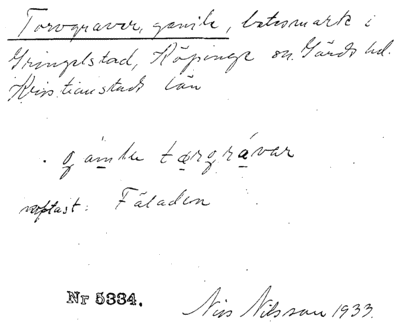 Torvgravar, gamla, betesmark i
Gringelstad, Köpinge sn. Gärds hd.
Kristianstads län
. gamla tørgrávar
upptast: Fäladen
Nr 5334.
Nils Nilsson 1933.